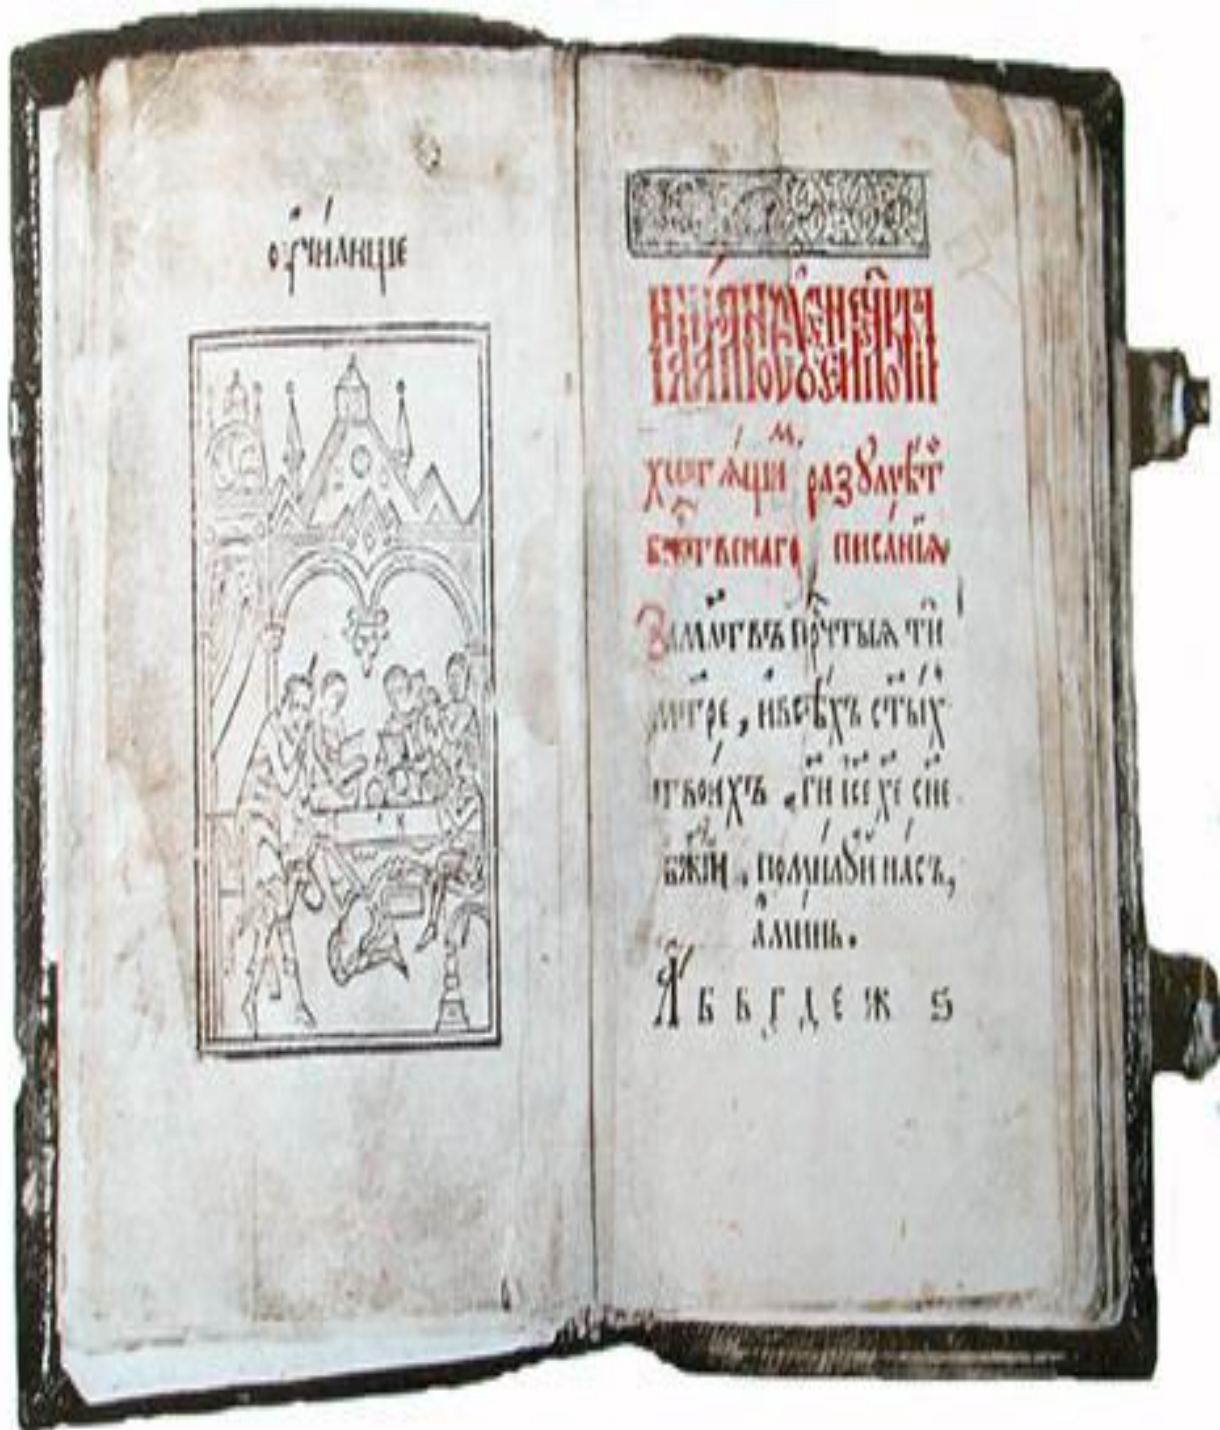 ᲂу҆чи́лище
хотѧ́щиⷨ разꙋмѣ́тⷩ
бжⷭ҇твенаго писа́нїѧ
За мл҃твъ прⷱ҇тыѧ тⷡ҇и
мт҃ре, и҆ всѣ́хъ ст҃ы́хъ
твои́хъ . гⷭ҇и і҆с҃е х҃е сн҃е
бж҃їи, поми́лꙋй на́съ,
а҆ми́нь.
А б в г д е ж ѕ